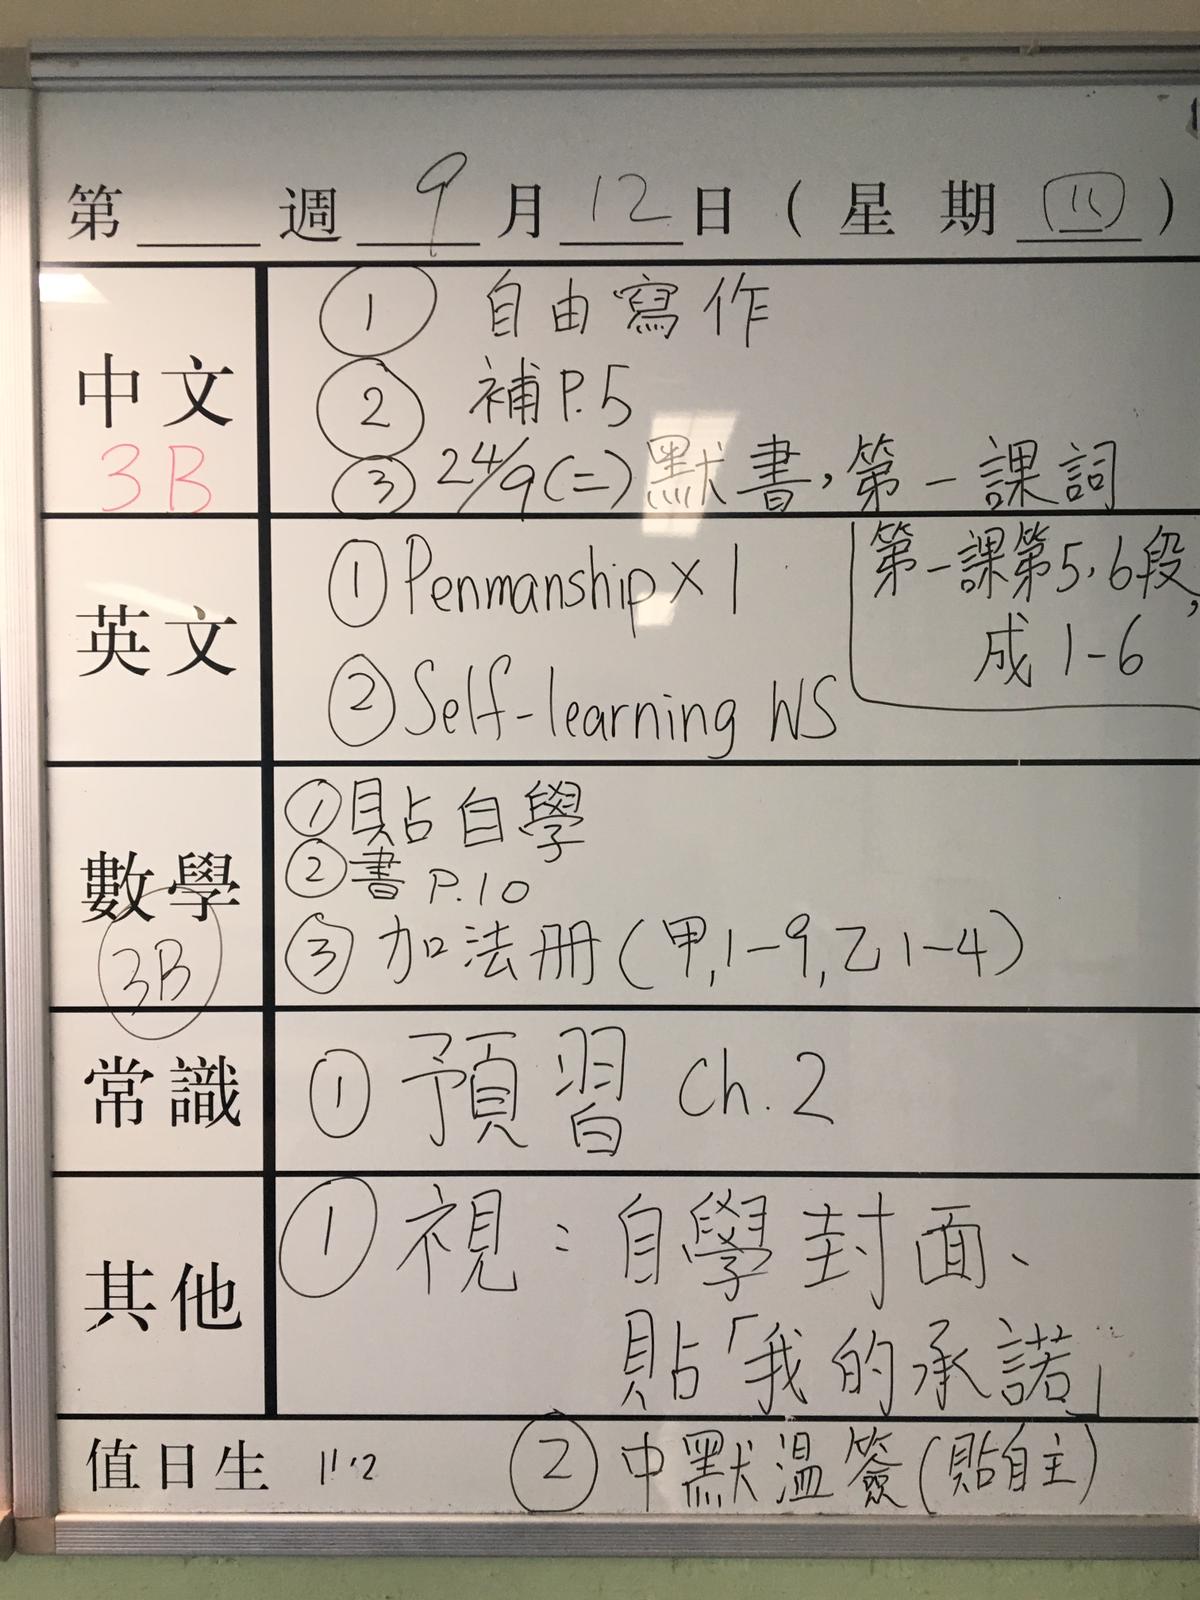 第 週 9 月 12 日 ( 星 期 四 )
中文
3B
① 自由寫作
② 補P.5
③ 24/9(二)默書,第一課詞
第一課第5,6段,
成1-6
英文
① Penmanship×1
② Self-learning WS
數學
3B
① 貼自學
② 書 P.10
③ 加法冊(甲,1-9,乙1-4)
常識
① 預習 Ch.2
其他
① 視:自學封面、
貼「我的承諾」
② 中默溫簽(貼自主)
值日生